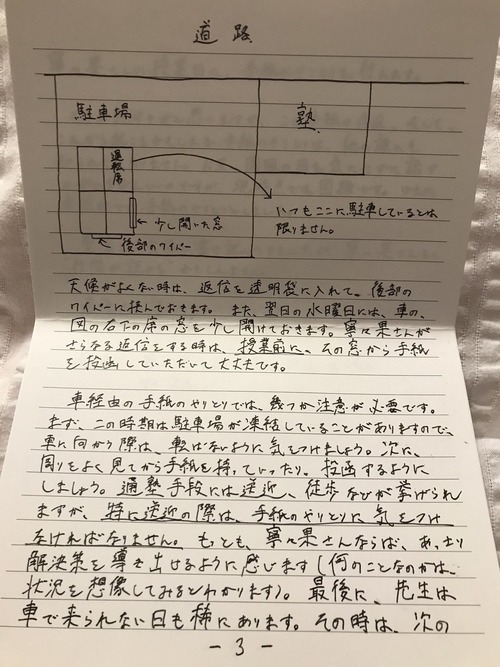 道路
駐車場
塾
運転席
←少し開いた窓
後部のワイパー
いつもここに駐車しているとは
限りません。
天候がよくない時は、返信を透明袋に入れて。後部の
ワイパーに挟んでおきます。また、翌日の水曜日には、車の、
図の右下の席の窓を少し開けておきます。寧々果さんが
さらなる返信をする時は、授業前に、その窓から手紙
を投函していただいて大丈夫です。
車経由の手紙のやりとりでは、幾つか注意が必要です。
まず、この時期は駐車場が凍結していることがありますので、
車に向かう際は、転ばないように気をつけましょう。次に、
周りをよく見てから手紙を持っていったり、投函するように
しましょう。通塾手段には送迎、徒歩などが挙げられ
ますが、特に送迎の際は、手紙のやりとりに気をつけ
なければなりません。もっとも、寧々果さんならば、あっさり
解決策を導き出せるように感じます(何のことなのかは、
状況を想像してみるとわかります)。最後に、先生は
車で来られない日も稀にあります。その時は、次の
- 3 -